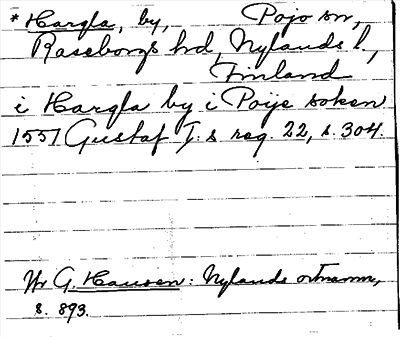 * Hargla, by, Pojo sn,
Raseborgs hd, Nylands l.,
Finland
i Hargla by i Poije soken
1551 Gustaf I:s reg. 22, s. 304.
Ur G. Hausen: Nylands ortnamn,
s. 893.